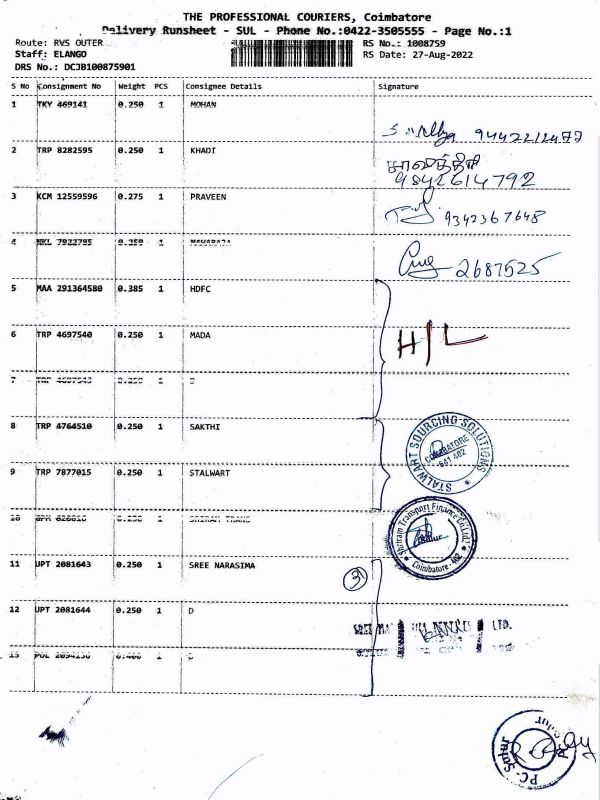 THE PROFESSIONAL COURIERS, Coimbatore
Delivery Runsheet - SUL - Phone No.:0422-3505555 - Page No.:1
Route: RVS OUTER
RS No.: 1008759
Staff: ELANGO
RS Date: 27-Aug-2022
DRS No.: DCJB100875901
S No Consignment No Weight PCS Consignee Details Signature
1 TKY 469141 0.250 1 MOHAN
9442212477
2 TRP 8282595 0.250 1 KHADI
சாவித்திரி
9842614792
3 KCM 12559596 0.275 1 PRAVEEN
9342367648
4 NKL 7922785 0.250 1 MAHARAJA
2687525
5 MAA 291364580 0.385 1 HDFC
6 TRP 4697540 0.250 1 MADA
H/L
7 TRP 4697543 0.250 1
8 TRP 4764510 0.250 1 SAKTHI
STALWART SOURCING SOLUTIONS
COIMBATORE
-641 402
9 TRP 7877015 0.250 1 STALWART
10 0.250 1 SHRIRAM TRANS
Shriram Transport Finance Co.Ltd.
Sulur
Coimbatore - 402
11 UPT 2081643 0.250 1 SREE NARASIMA
3
12 UPT 2081644 0.250 1 D
SREE LTD.
13 0.400 1
PC - Sulur